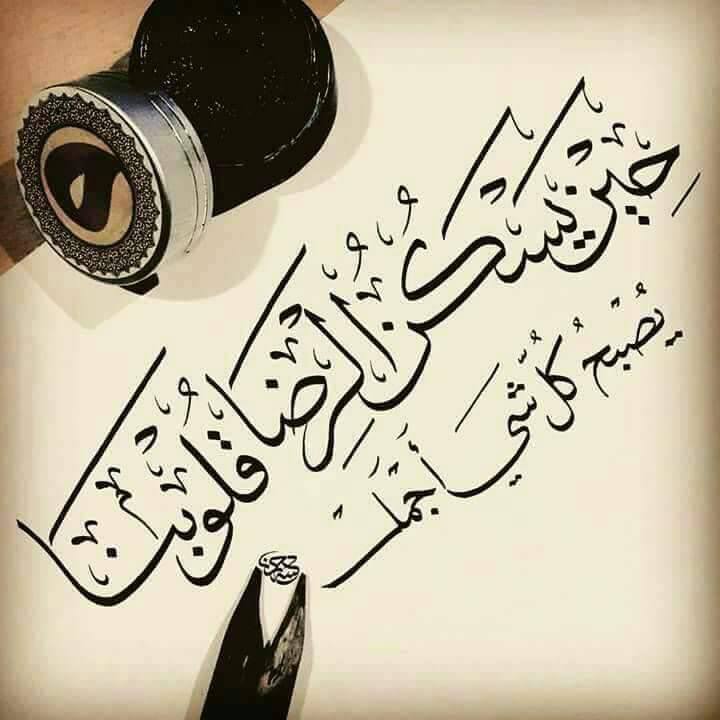 حِيْنَ يَسْكُنُ الرِّضَا قُلُوْبَنَا
يُصْبِحُ كُلُّ شَيْ أَجْمَلْ